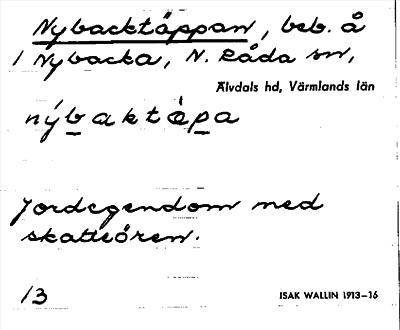 Nybacktäppan, beb. å
1 Nybacka, N. Råda sn,
Älvdals hd, Värmlands län
nýbaktäpa
Jordegendom med
skatteören.
13
ISAK WALLIN 1913–16